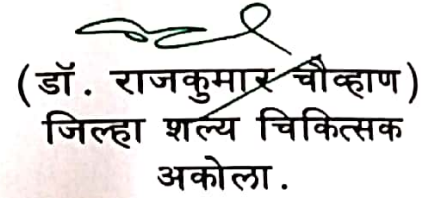 (डॉ. राजकुमार चौव्हाण)
जिल्हा शल्य चिकित्सक
अकोला.